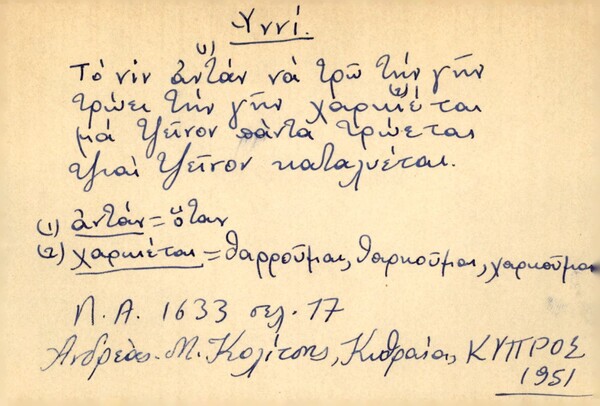 Υννί.
Τό νίν ἀντάν(1) νά τρῶ τήν γῆν
τρώει τήν γῆν χαρκιέται(2)
μά τζεῖνον πάντα τρώεται
τζιαί τζεῖνον καταλυέται.
(1) ἀντάν = ὅταν
(2) χαρκιέται = θαρροῦμαι, θαρκοῦμαι, χαρκοῦμαι
Λ.Α. 1633 σελ. 17
Ἀνδρέας Μ. Κολίτσης, Κυθραία, ΚΥΠΡΟΣ
1951